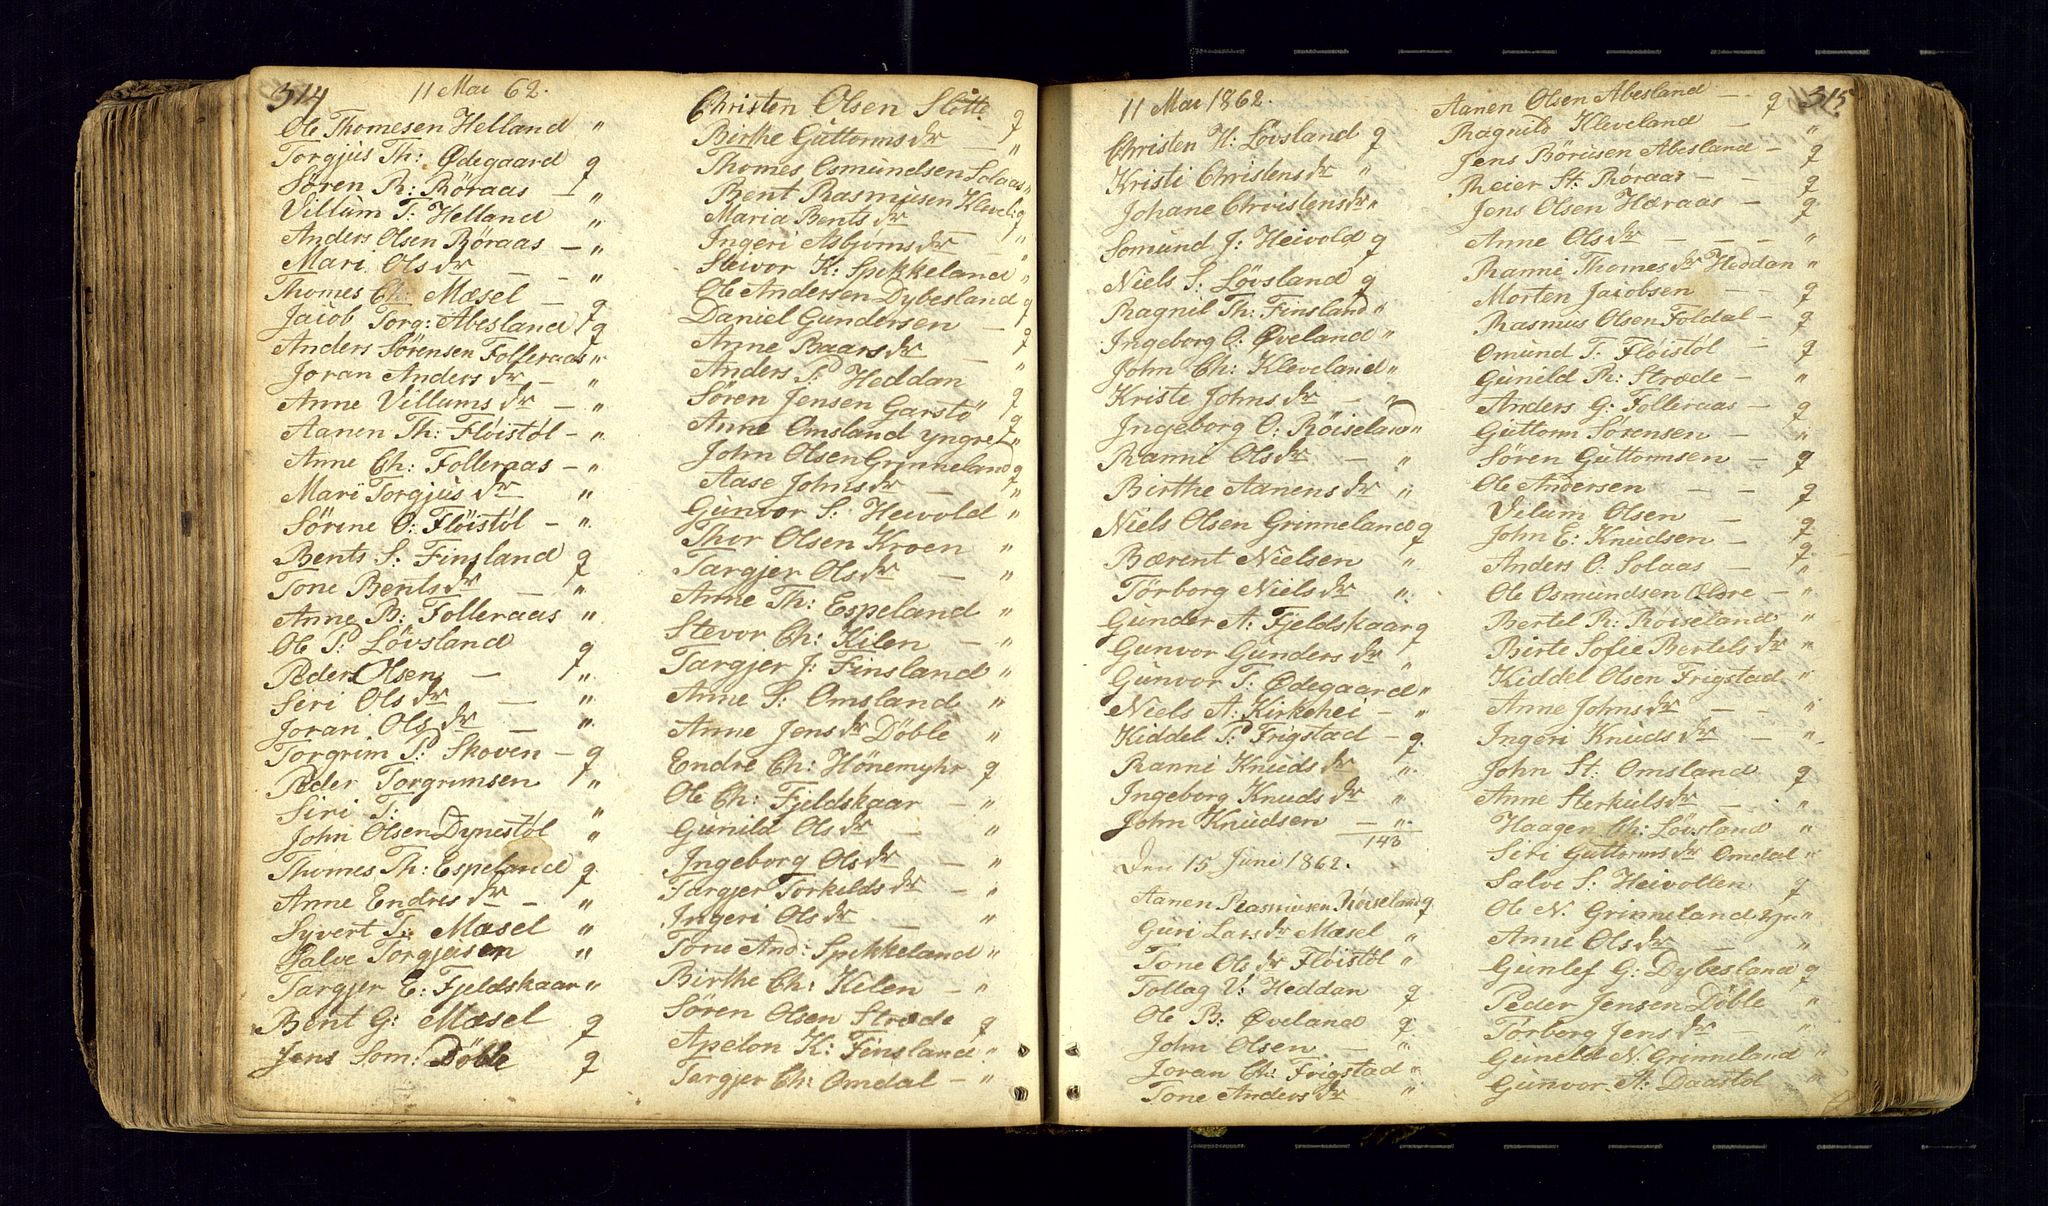 314
11 Mai 62.
Ole Thomesen Helland "
Torgjus Th: Ødegaard g
Søren R: Røraas — "
Villum T: Helland "
Anders Olsen Røraas — "
Mari Olsdr — — "
Thomes Ch: Mæsel — g
Jacob Torg: Abesland g
Anders Sørensen Folleraas "
Joran Andersdr — "
Anne Villumsdr — "
Aanen Th: Fløistøl — "
Anne Ch: Folleraas — "
Mari Torgjusdr "
Sørine O: Fløistøl — "
Bents S: Finsland g
Tone Bentsdr — "
Anne B: Folleraas "
Ole P: Løvsland g
Peders Olsen — "
Siri Olsdr — "
Joran Olsdr — "
Torgrim P: Skoven — g
Peder Torgrimsen "
Siri T: "
John Olsen Dynestøl "
Thomes Th: Espeland g
Anne Endresdr — "
Syvert T: Mæsel "
Salve Torgjusen "
Targjer E: Fjeldskaar "
Bent G: Mæsel g
Jens Som: Døble g
Christen Olsen Slitte g
Birthe Guttormsdr — "
Thomes Osmundsen Solaas "
Bent Rasmusen Klevel: g
Maria Bentsdr "
Ingeri Asbjornsdr — "
Steivor K: Spikkeland "
Ole Andersen Dybesland g
Daniel Gundersen — g
Anne Baarsdr — "
Anders P: Heddan g
Søren Jensen Garstø g
Anne Omsland yngre "
John Olsen Grinneland g
Aase Johnsdr — "
Gunvor S: Heivold "
Thor Olsen Kroen "
Targjer Olsdr — "
Anne Th: Espeland "
Stevor Ch: Kilen — "
Targjer J: Finsland "
Anne S: Omsland "
Anne Jensdr Døble "
Endre Ch: Hønemyhr g
Ole Ch: Fjeldskaar — "
Gunild Olsdr — "
Ingeborg Olsdr — "
Targjer Torkildsdr — "
Ingeri Olsdr — "
Tone And: Spikkeland "
Birthe Ch: Kilen — "
Søren Olsen Stræde g
Apelon K: Finsland "
Targjer Ch: Omdal — "
11 Mai 1862.
Christen H: Løvsland g
Kristi Christensdr "
Johane Christensdr "
Somund J: Heivold g
Niels S: Løvsland g
Ragnil Th: Finsland "
Ingeborg O: Øveland "
John Ch: Kleveland "
Kriste Johnsdr — "
Ingeborg O: Røiseland "
Ranni Olsdr — "
Birthe Aanensdr "
Niels Olsen Grinneland g
Bærent Nielsen "
Tørborg Nielsdr "
Gunder A: Fjeldskaar g
Gunvor Gundersdr "
Gunvor T: Ødegaard "
Niels A: Kirkehei — "
Kiddel P: Frigstad — g
Ranni Knudsdr "
Ingeborg Knudsdr "
John Knudsen — "
143
Den 15 Juni 1862.
Aanen Rasmusen Røiseland g
Guri Larsdr Mæsel "
Tone Olsdr Fløistøl "
Tollag V: Heddan g
Ole B: Øveland g
John Olsen — "
Joran Ch: Frigstad "
Tone Andersdr "
315
Aanen Olsen Abesland — g
Ragnild Kleveland "
Jens Børusen Abesland — g
Reier St: Røraas — — g
Jens Olsen Hæraas — g
Anne Olsdr — — — "
Ranni Thomesdr Heddan "
Morten Jacobsen — — g
Rasmus Olsen Foldal — g
Omund T: Fløistøl — g
Gunild R: Stræde — "
Anders G: Folleraas — g
Guttorm Sørensen — "
Søren Guttormsen — g
Ole Andersen — — g
Vilum Olsen — g
John E: Knudsen — g
Anders O: Solaas — "
Ole Osmundsen Oldre — "
Bertel R: Røiseland "
Birte Sofie Bertelsdr "
Kiddel Olsen Frigstad "
Anne Johnsdr — — "
Ingeri Knudsdr — "
John St: Omsland g
Anne Sterkulsdr — "
Haagen Ch: Løvsland "
Siri Guttormsdr Omdal "
Salve S: Heivollen g
Ole N. Grinneland "
Anne Olsdr — "
Gunlef G: Dybesland g
Peder Jensen Døble "
Tørborg Jensdr — "
Gunild N. Grinneland "
Gunvor A: Daastøl "